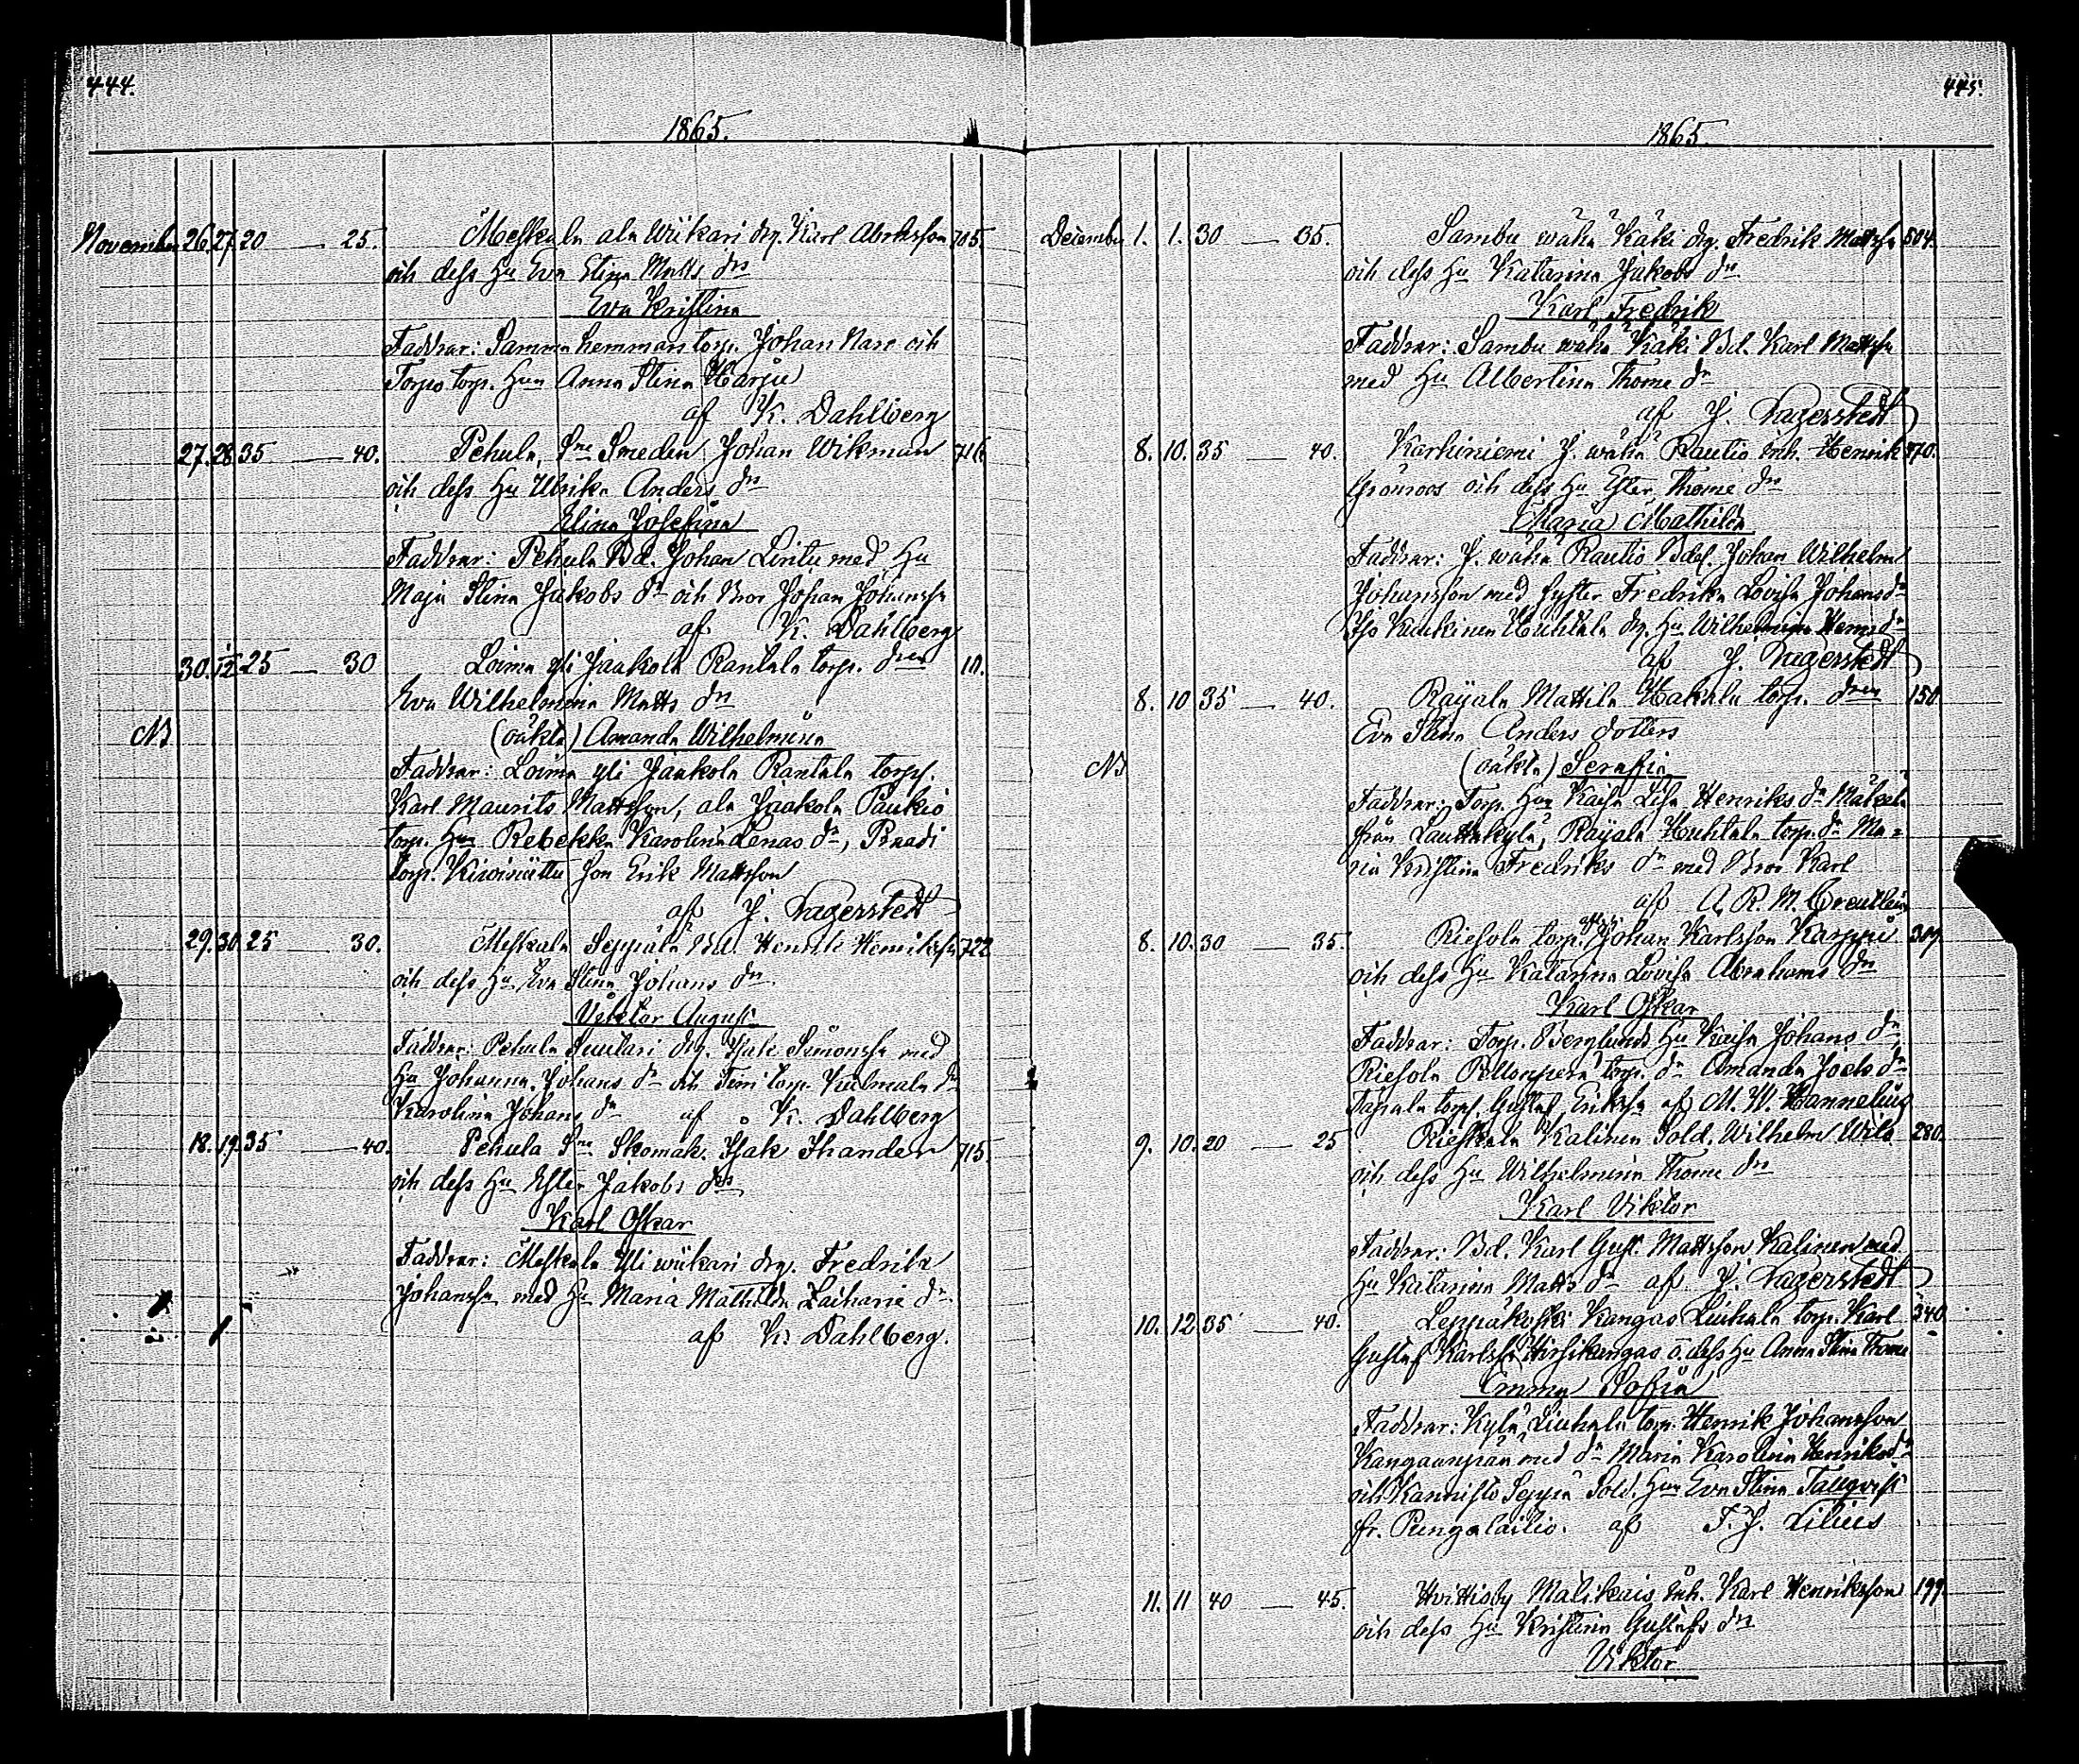 444.
1865.
November 26. 27. 20 — 25. Meskala ala Wiikari drg. Karl Abrahsson 705.
och dess Hu Eva Stina Matts dr
Eva Kristina
Faddrar: Samma hemmans torp. Johan Nare och
Torps torp. Hun Anna Stina Harju
af K. Dahlberg
27. 28. 35 — 40. Pehula Sne Smeden Johan Wikman 716.
och dess Hu Ulrika Anders dr
Elina Josefina
Faddrar: Pehula Bd. Johan Lintu med Hu
Maja Stina Jakobs dr och Bror Johan Johansson
af K. Dahlberg
30. 1/12 25 — 30 Loima yli Jaakola Rantala torp. dren 10.
Eva Wilhelmina Matts dr
NB (oäkta) Amanda Wilhelmina
Faddrar: Loima yli Jaakola Rantala torps.
Karl Maurits Mattsson, ala Jaakola Paukio
torp. Hun Rebekka Karolina Lenas dr,
torp. son Erik Mattsson
af J. Lagerstedt
29. 30. 25 — 30. Meskala Seppälä Bd. Henrik Henriksson 722
och dess Hu Eva Stina Johans dr
Viktor August
Faddrar: Pehula drg. Isak Simonsson med
Hu Johanna Johans dr och torp. dr
Karolina Johans dr af K. Dahlberg
18. 19. 35 — 40. Pehula Sne Skomak. Isak Ihander 715.
och dess Hu Ester Jakobs dr
Karl Oskar
Faddrar: Meskala Yli wiikari drg. Fredrik
Johansson med Hu Maria Mathilda Zacharie dr
af K. Dahlberg.
445.
1865.
December 1. 1. 30 — 35. Sambu wähä Käki drg. Fredrik Mattsson 504.
och dess Hu Katarina Jakobs dr
Karl Fredrik
Faddrar: Sambu wähä Käki Bd. Karl Mattsson
med Hu Albertina Thome dr
af J. Lagerstedt
8. 10. 35 — 40. Karhiniemi J. wähä Rautio inh. Henrik 770.
Grönroos och dess Hu Ester Thome dr
Maria Mathilda
Faddrar: J. wähä Rautio Bds. Johan Wilhelm
Johansson med syster Fredrika Lovisa Johans dr
Iso Kaukinen Huhtala drg. Hu Wilhelmina Henr. dr
af J. Lagerstedt
8. 10 35 — 40. Rajala Mattila Hakala torp. dren 150
Eva Stina Anders dotters
NB (oäkta) Serafia
Faddrar: Torp. Hun Kaisa Lisa Henriks dr
från Lauttakylä, Rajala Huhtala torp. dr Ma=
ria Kristina Fredriks dr med Bror Karl
af A. R. M. Creutlein
8. 10. 30 — 35. Riesola torp. Johan Karlsson Karppi 319.
och dess Hu Katarina Lovisa Abrahams dr
Karl Oskar
Faddrar: Torp. Berglunds Hu Kaisa Johans dr,
Riesola torp. dr Amanda Joels dr
torps. Gustaf Eriksson af M. W. Hannelius
9. 10. 20 — 25 Rieskala Kalinen Sold. Wilhelm Wils 280.
och dess Hu Wilhelmina Thome dr
Karl Viktor
Faddrar: Bd. Karl Gust. Mattsson Kalinen med
Hu Katarina Matts dr af J. Lagerstedt
10. 12. 35 — 40. Leppäkoski Kangas Liuhala torp. Karl 340
Gustaf Karlsson Hirsikangas o. dess Hu Anna Stina Thome
Emma Sofia
Faddrar: Kylä Liuhala torp. Henrik Johansson
Kangaanpää med dr Maria Karolina Henriks dr
och Kannisto Seppä Sold. Hun Eva Stina Tallqvist
fr. Pungalaitio. af F. J. Lilius
11. 11 40 — 45. Hvittisby Mälikäis Inh. Karl Henriksson 199
och dess Hu Kristina Gustafs dr
Viktor